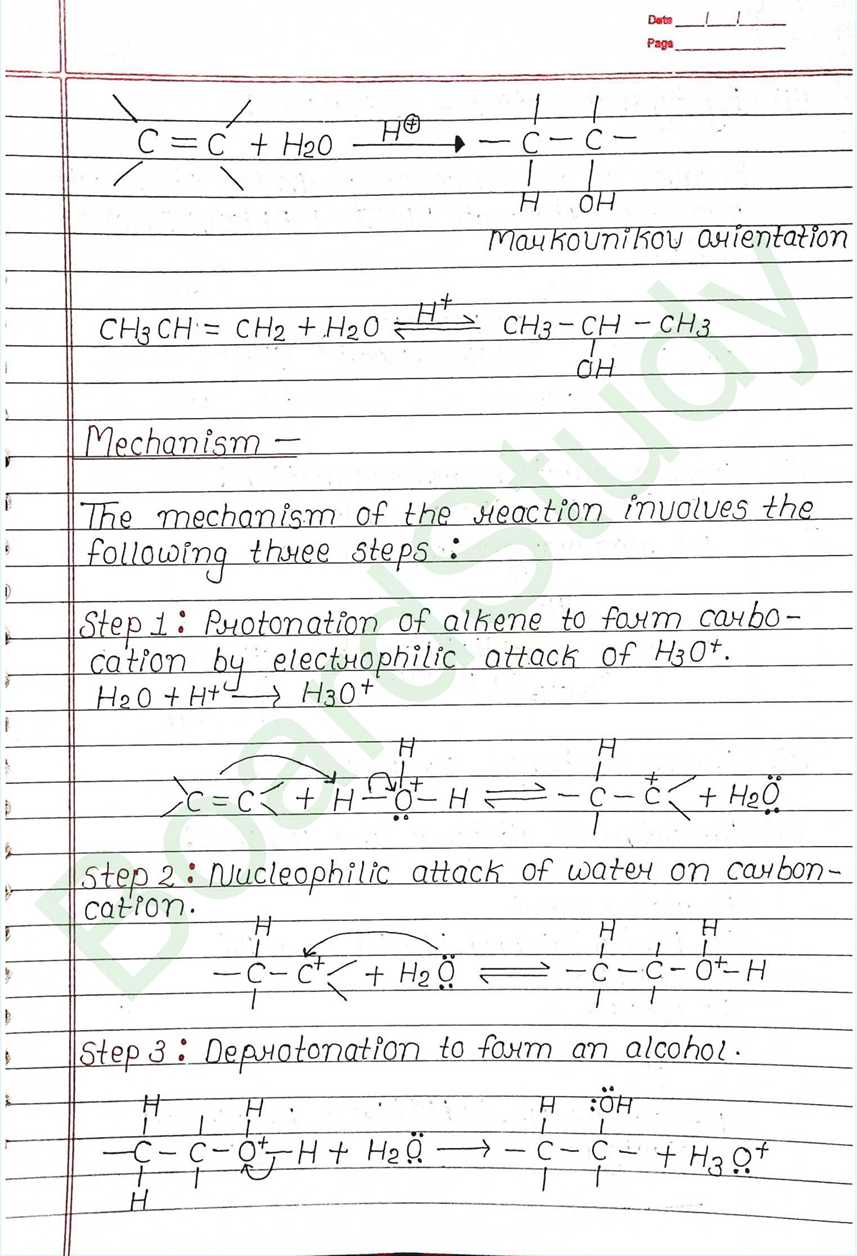 Date __/__/____
Page ________
C = C + H2O H⊕ → — C — C —
H OH
Markovnikov orientation
CH3CH = CH2 + H2O H+ ⇌ CH3 – CH – CH3
OH
Mechanism –
The mechanism of the reaction involves the
following three steps :
Step 1 : Protonation of alkene to form carbo-
cation by electrophilic attack of H3O+.
H2O + H+ → H3O+
H H
C = C + H – O+ – H ⇌ – C – C+ + H2O
Step 2 : Nucleophilic attack of water on carbon-
cation.
H H H
– C – C+ + H2O ⇌ – C – C – O+ – H
Step 3 : Deprotonation to form an alcohol.
H H H :ÖH
– C – C – O+ – H + H2O → – C – C – + H3O+
H
BoardStudy